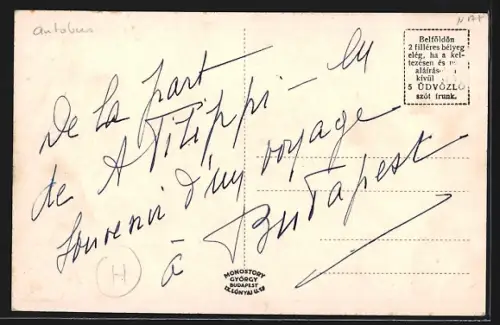 Autobus
Belföldön
2 filléres bélyeg
elég, ha a kel-
tezésen és
aláírás-
kívül
5 ÜDVÖZLŐ
szót írunk.
De la part
de A Filippi – en
souvenir d'un voyage
à Budapest
H
MONOSTORY
GYÖRGY
BUDAPEST
IX. LÓNYAI U. 18